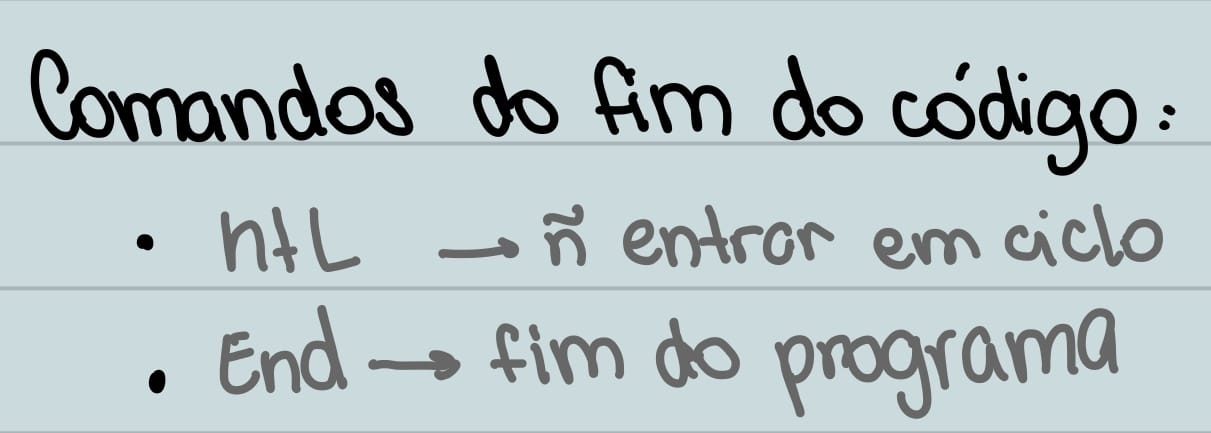 Comandos do fim do código:
• htL → ñ entrar em ciclo
• End → fim do programa